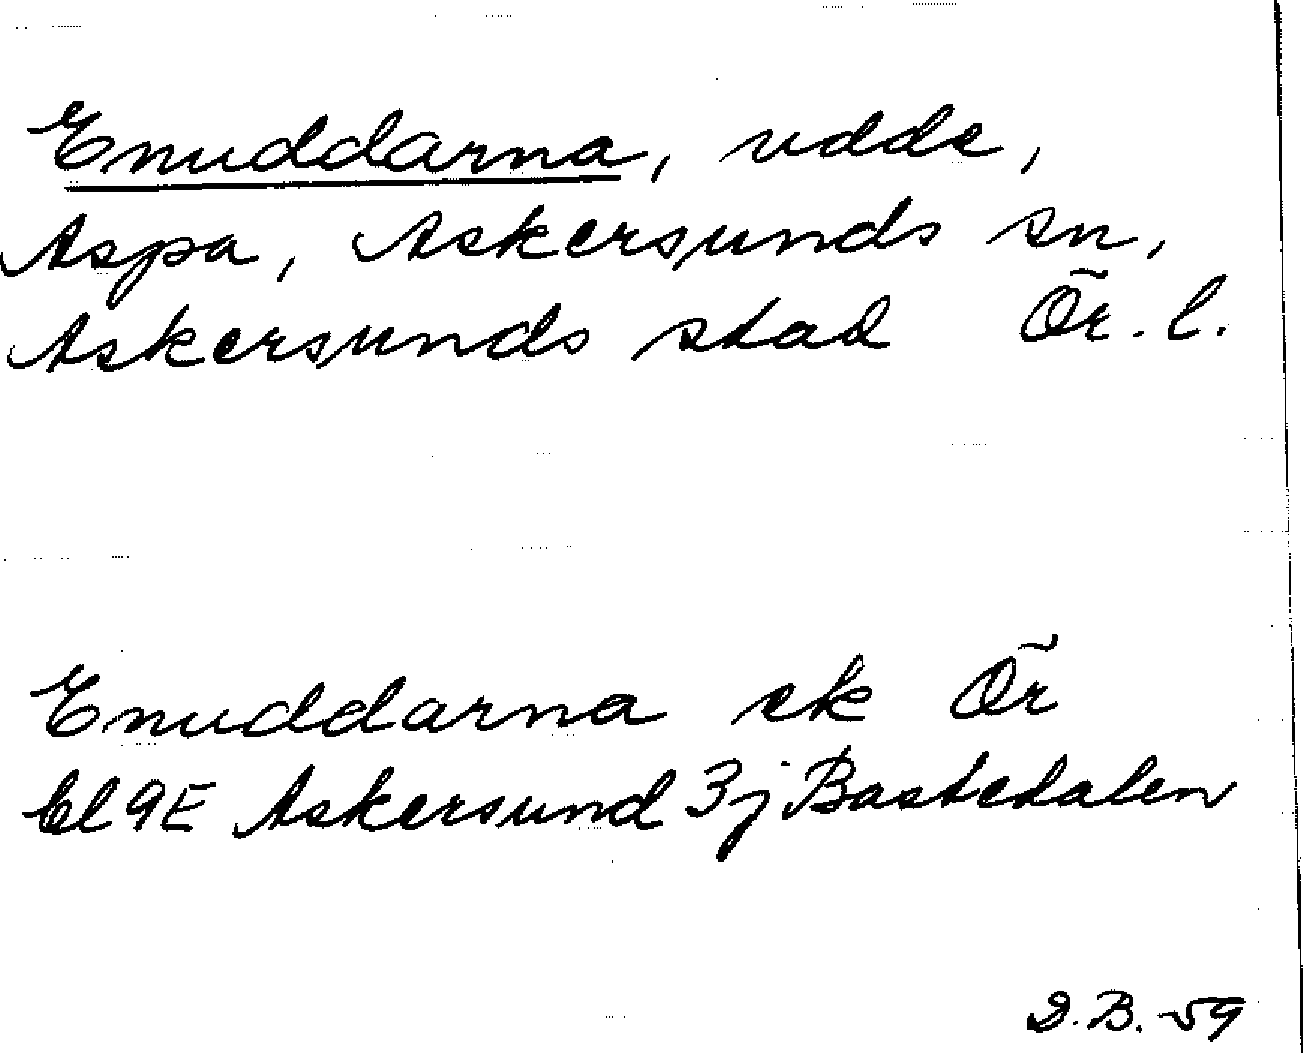 Enuddarna, udde,
Aspa, Askersunds sn,
Askersunds stad Ör. l.
Enuddarna ek Ör
bl 9E Askersund 3j Bastedalen
D.B. -59